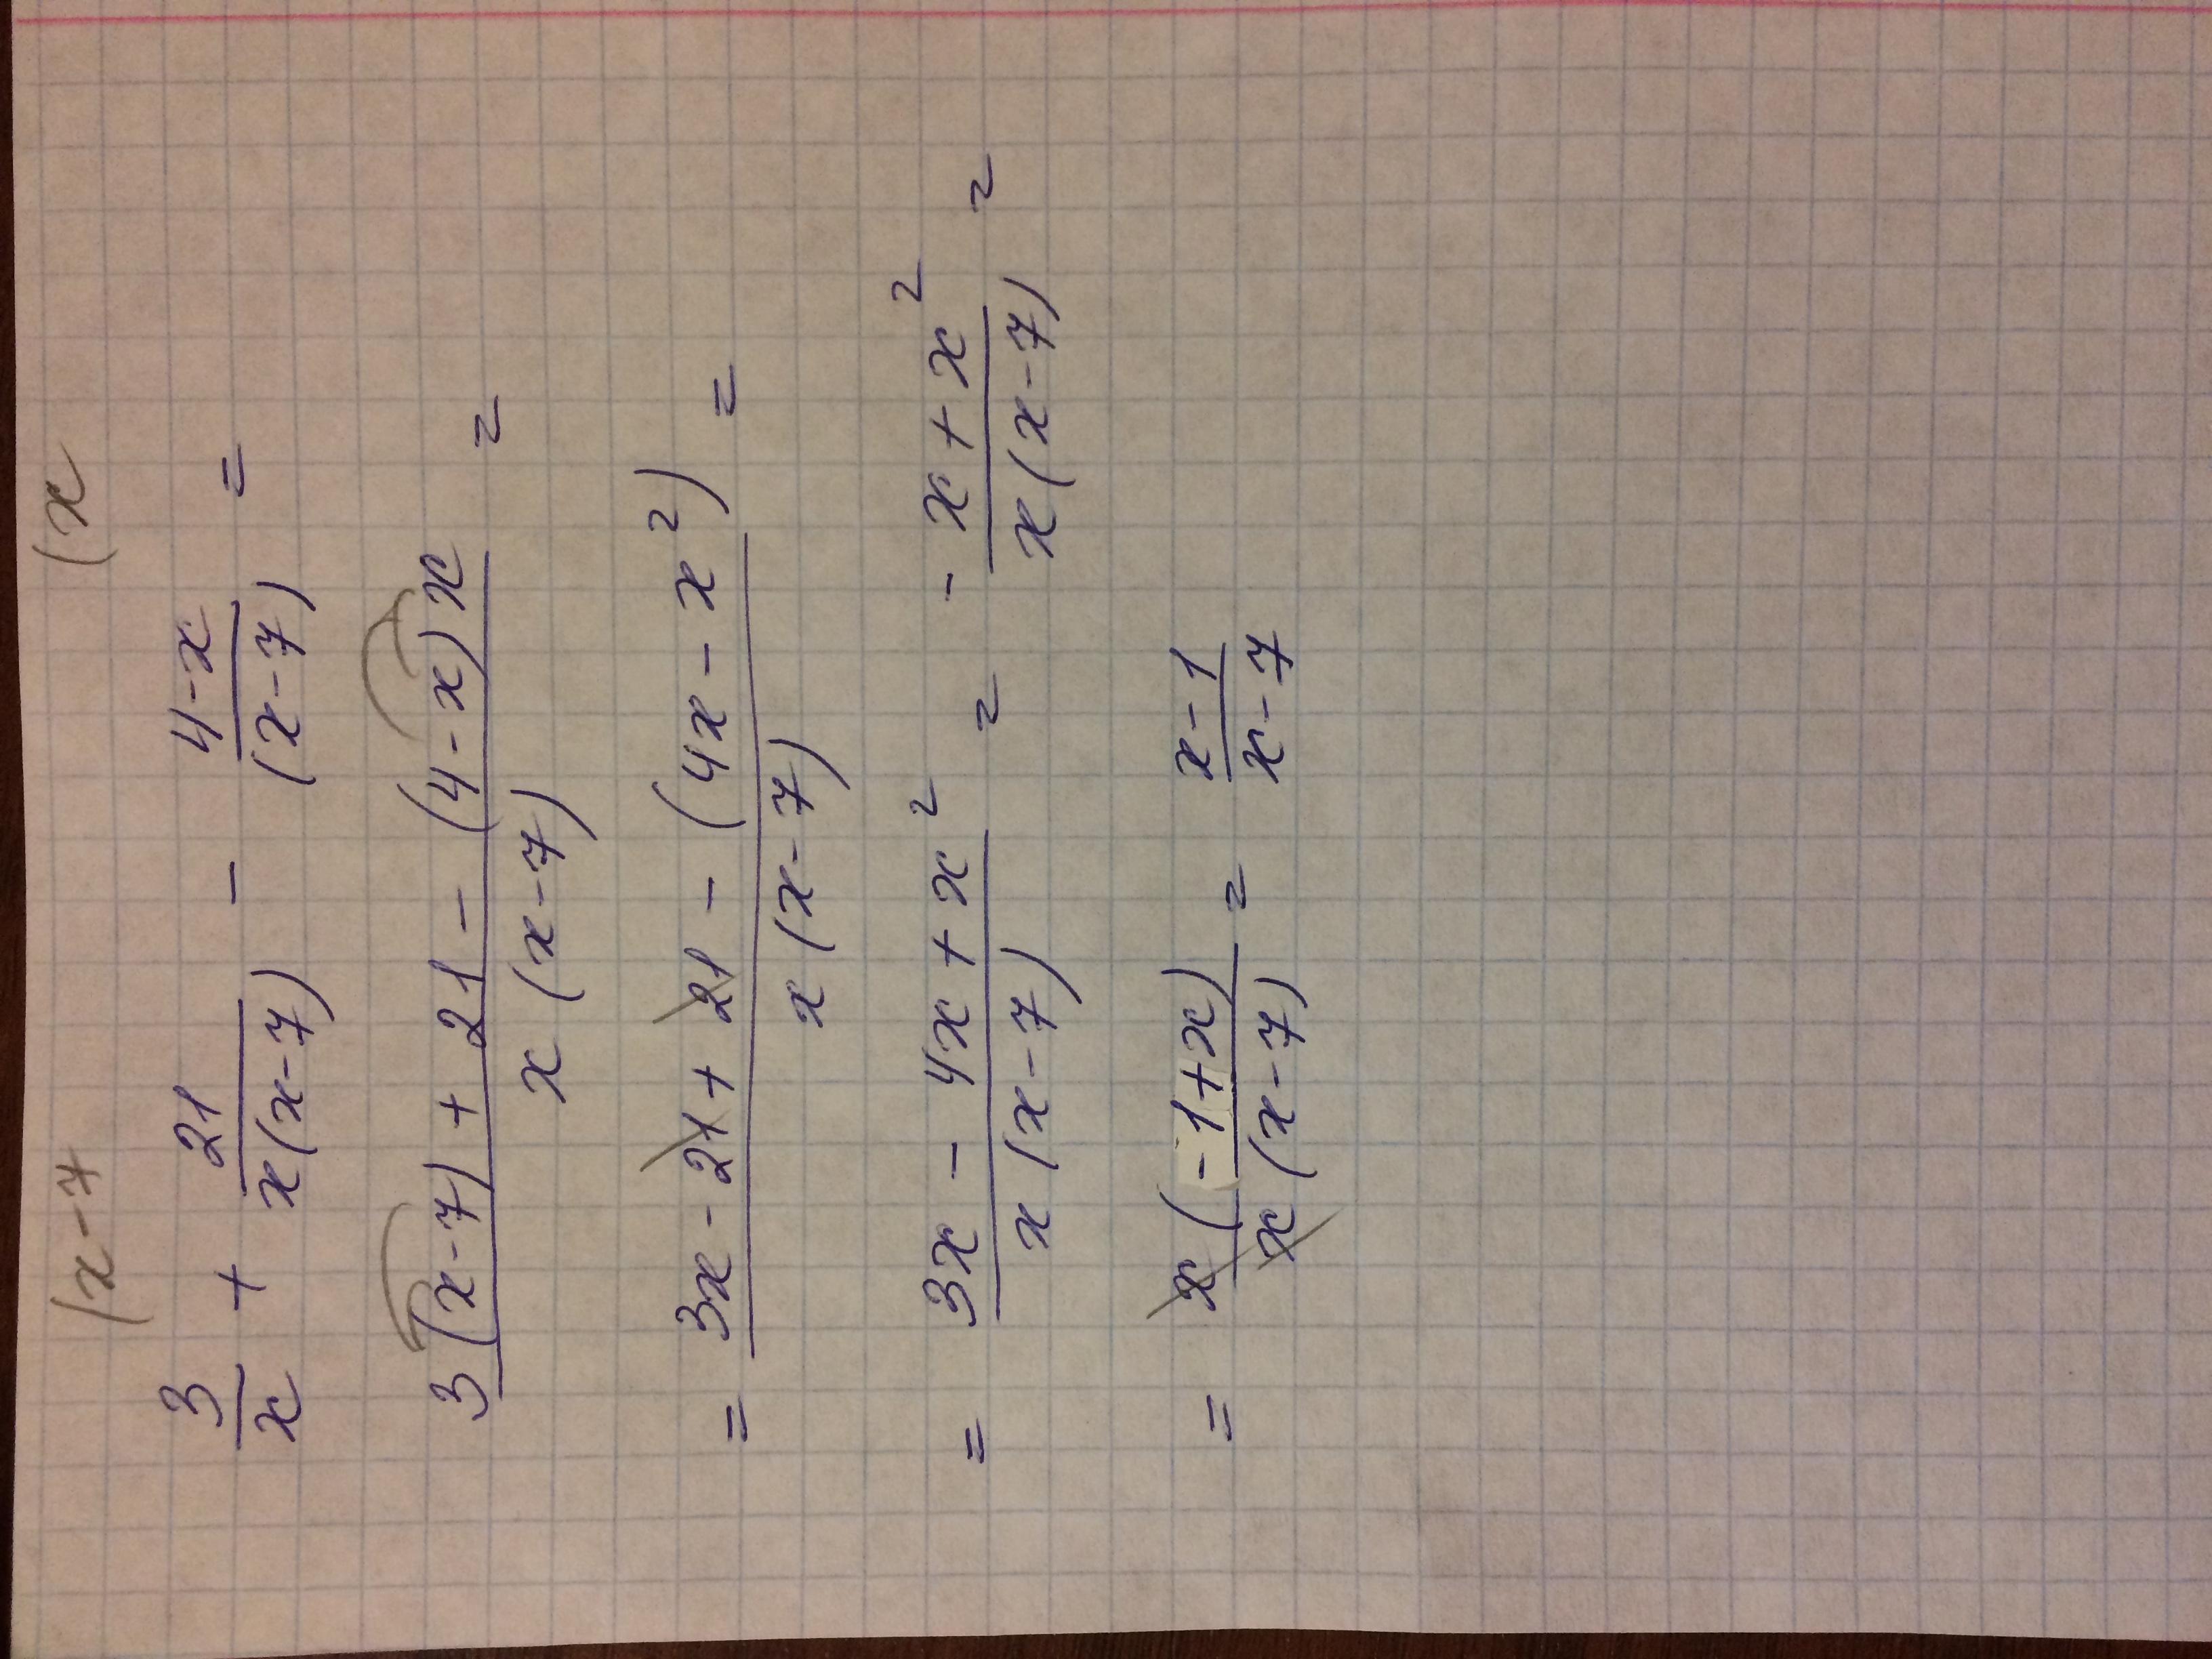 (x-7 (x
3/x + 21/x(x-7) - 4-x/(x-7) =
3(x-7) + 21 - (4-x)x/x(x-7) =
= 3x - 21 + 21 - (4x - x²)/x(x-7) =
= 3x - 4x + x²/x(x-7) = -x + x²/x(x-7) =
= x(-1+x)/x(x-7) = x-1/x-7